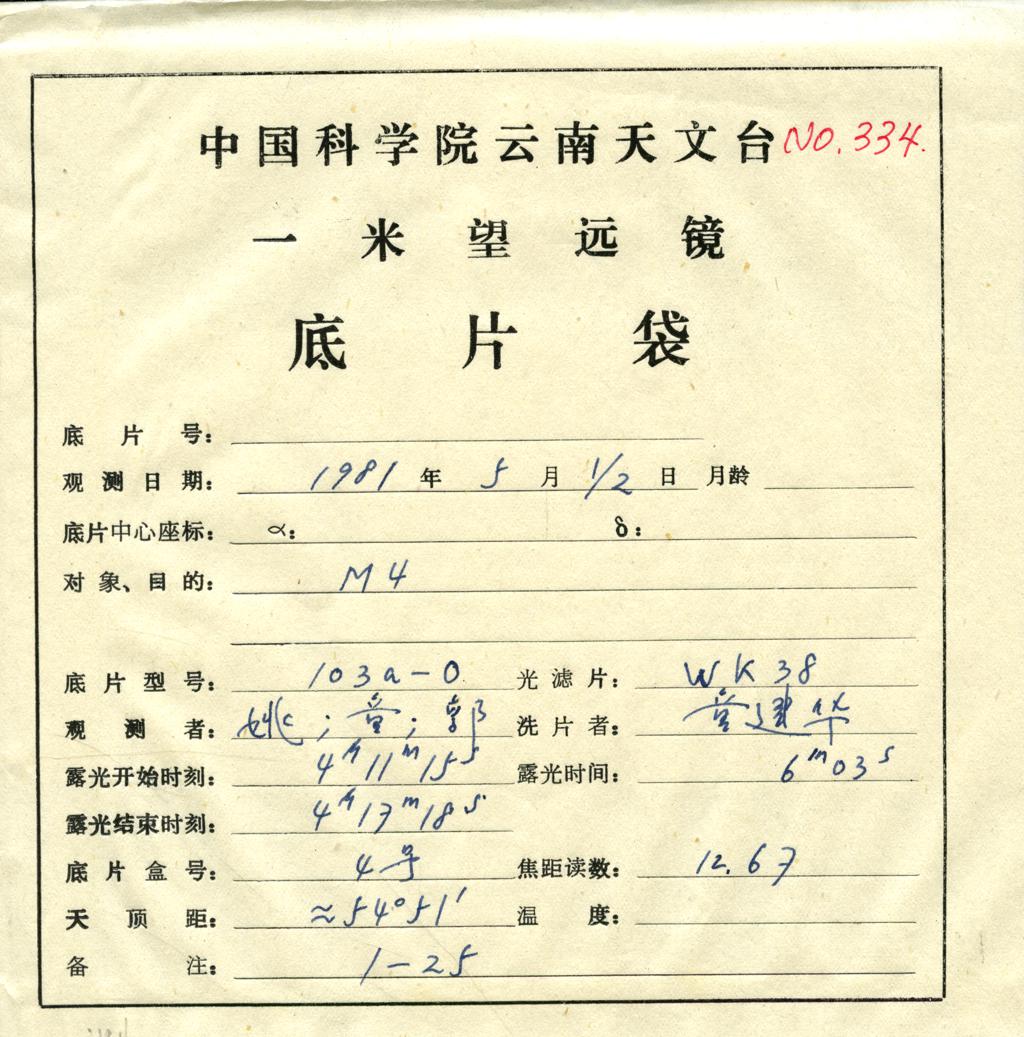 中国科学院云南天文台 NO. 334.
一米望远镜
底片袋
底片号：
观测日期： 1981 年 5 月 1/2 日 月龄
底片中心座标： α： δ：
对象、目的： M4
底片型号： 103a-O 光滤片： WK38
观测者： 姚；童；郭 洗片者： 童建华
露光开始时刻： 4h11m15s 露光时间： 6m03s
露光结束时刻： 4h17m18s
底片盒号： 4号 焦距读数： 12.67
天顶距： ≈54°51′ 温度：
备注： 1-25